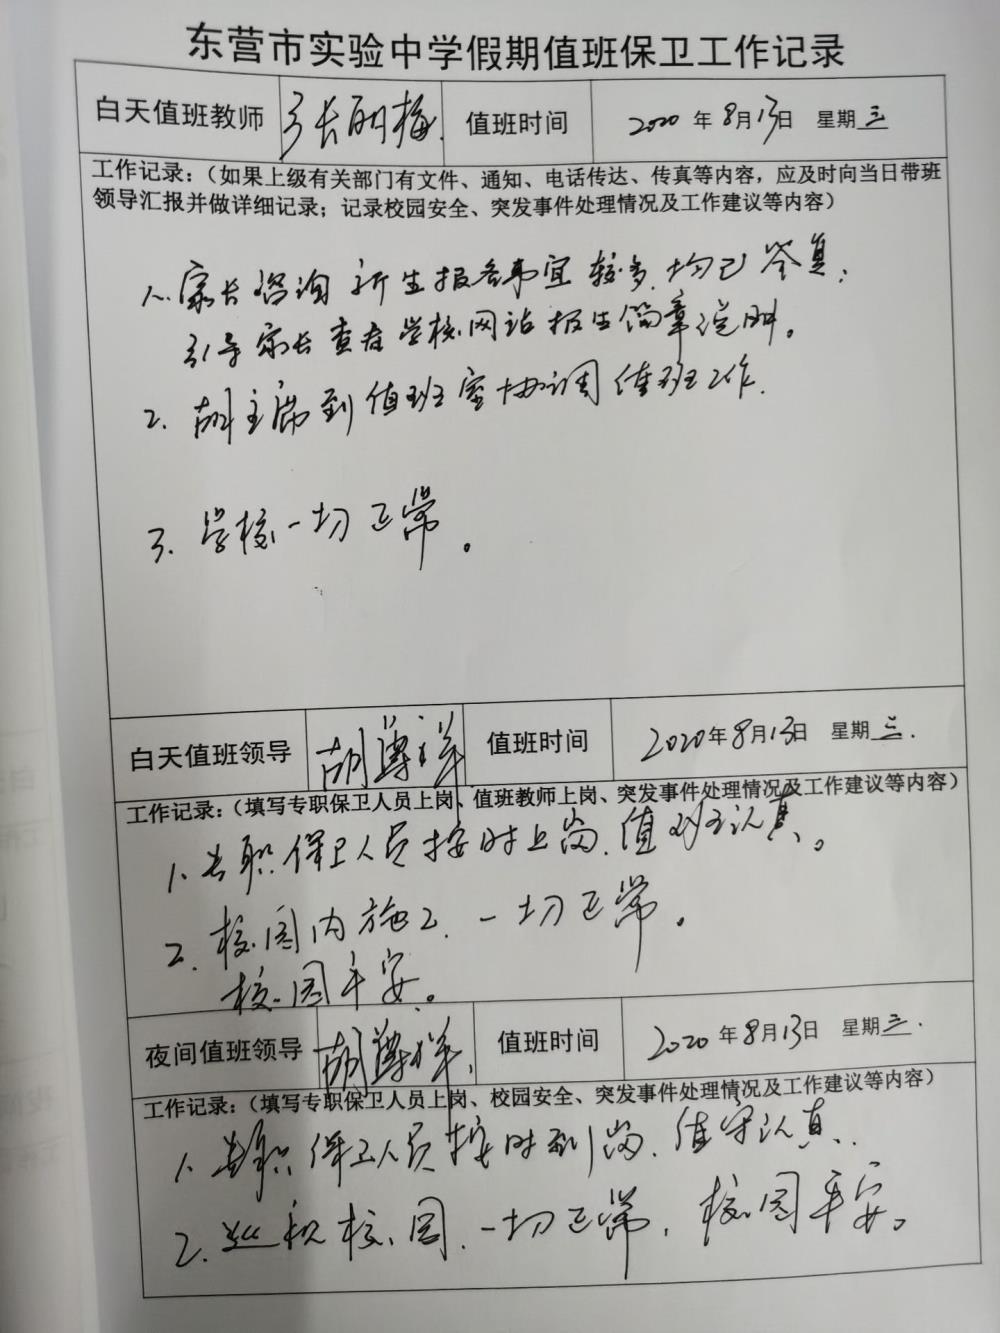 东营市实验中学假期值班保卫工作记录
白天值班教师 张丽梅 值班时间 2020年8月13日 星期三
工作记录：（如果上级有关部门有文件、通知、电话传达、传真等内容，应及时向当日带班
领导汇报并做详细记录；记录校园安全、突发事件处理情况及工作建议等内容）
1. 家长咨询新生报名事宜较多，均已答复；
引导家长查看学校网站招生简章说明。
2. 胡主席到值班室协调值班工作.
3. 学校一切正常。
白天值班领导 胡尊祥 值班时间 2020年8月13日 星期三.
工作记录：（填写专职保卫人员上岗、值班教师上岗、突发事件处理情况及工作建议等内容）
1. 专职保卫人员按时上岗，值班认真。
2. 校园内施工，一切正常。
校园平安。
夜间值班领导 胡尊祥 值班时间 2020年8月13日 星期三.
工作记录：（填写专职保卫人员上岗、校园安全、突发事件处理情况及工作建议等内容）
1. 专职保卫人员按时到岗，值守认真.
2. 巡视校园，一切正常，校园平安。